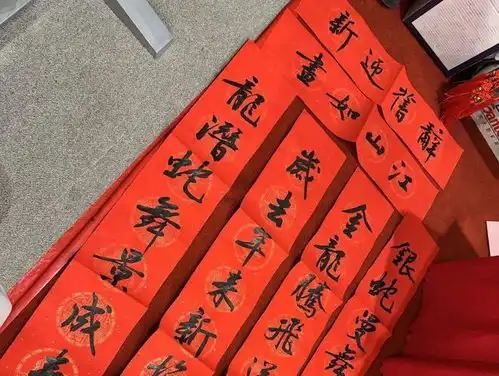 辭舊迎新
江山如畫
銀蛇曼舞
金龍騰飛
歲去年來新
龍潛蛇舞景成